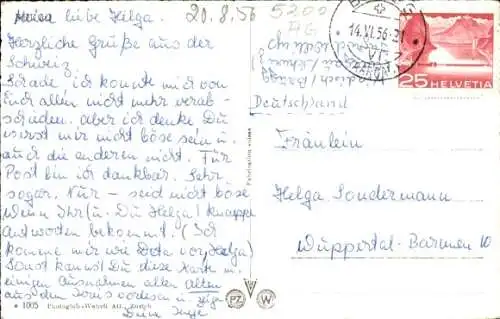 Meine liebe Helga. 20.8.56 5200 AG
Herzliche Grüße aus der
Schweiz.
Schade ich konnte mich von
Euch allen nicht mehr verab-
schieden. aber ich denke Du
wirst mir nicht böse sein u.
auch die anderen nicht. Für
Post bin ich dankbar. Sehr
sogar. Nur - seid nicht böse
wenn Ihr (u. Du Helga!) knappe
Antworten bekommt. (Ich
komme mir wie Dota vor, Helga)
Sonst kannst Du diese Karte m.
einigen Ausnahmen allen Alten
aus den vorlesen u.
Deine
14.VI.56
25 HELVETIA
Deutschland
Fräulein
Helga Sondermann
Wuppertal-Barmen 10
1005 Photoglob-Wehrli AG., Zürich
PZ W